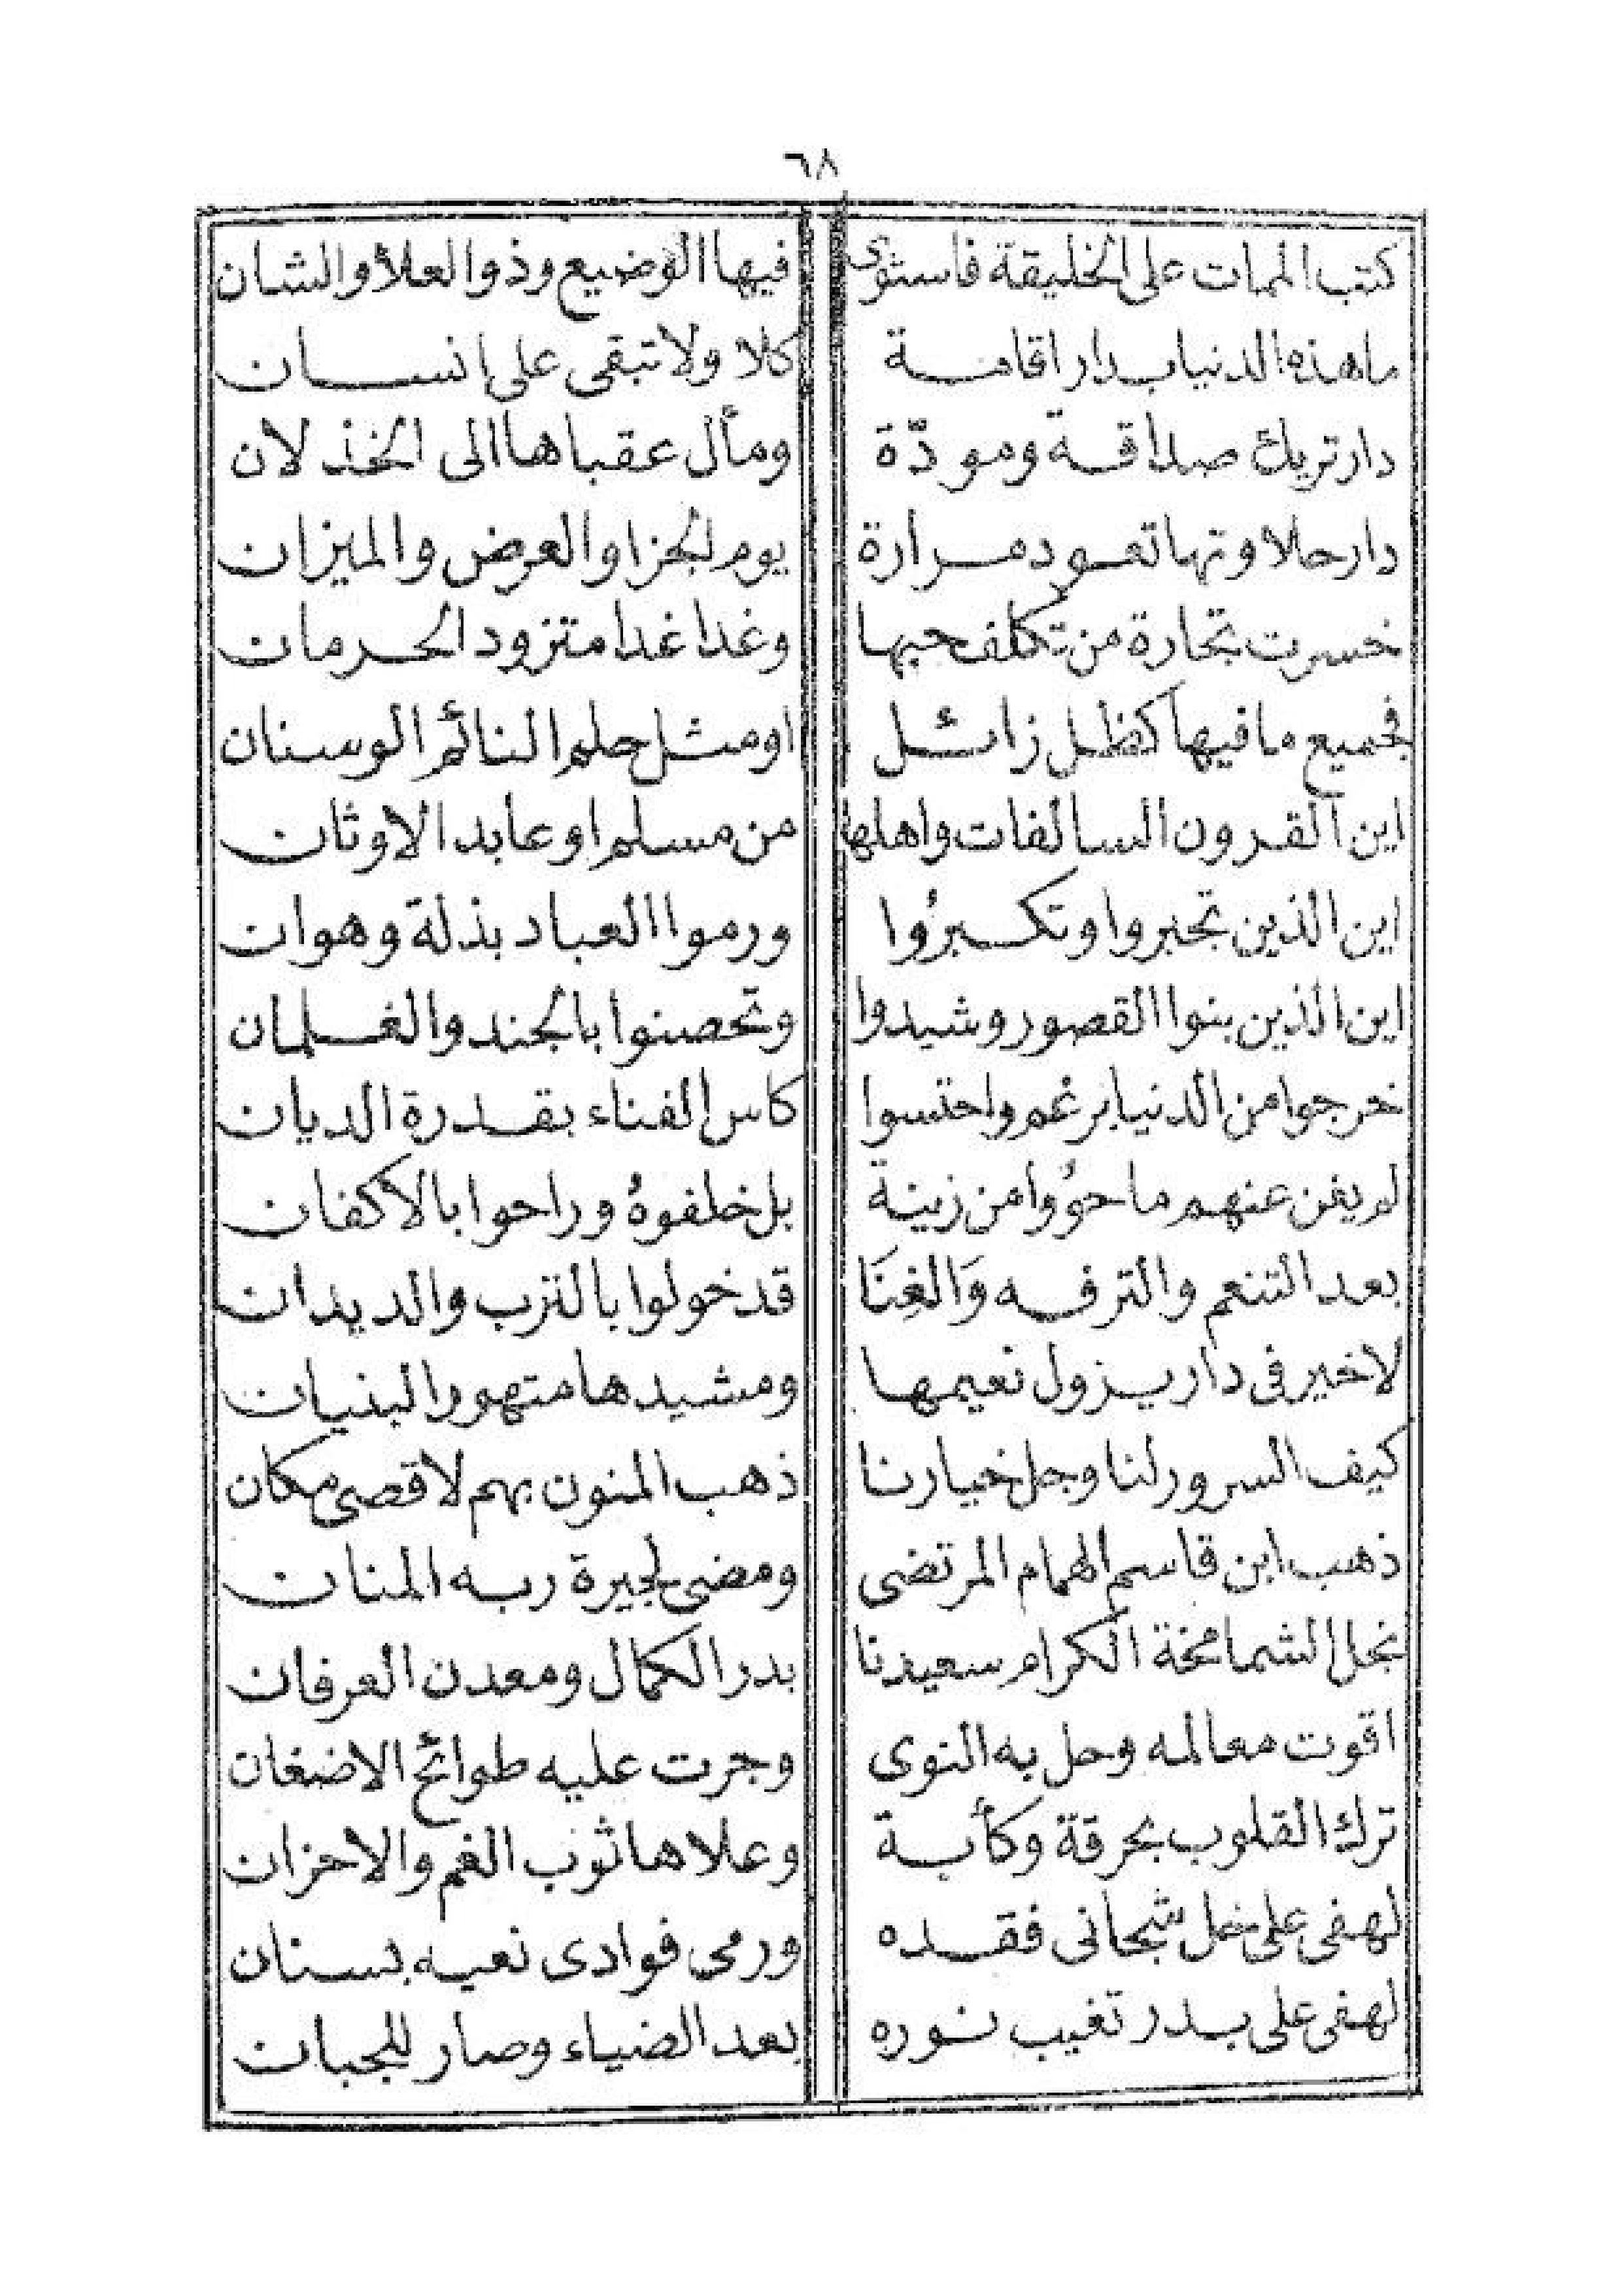 ٦٨
كتب الممات على الخليقة فاستوى فيها الوضيع وذو العلا والشان
ما هذه الدنيا بدار اقامة كلا ولا تبقى على انسان
دار تريك صداقة ومودّة ومأل عقباها الى الخذلان
دار حلاوتها تعود مرارة يوم الجزا والعرض والميزان
خسرت تجارة من تكلف حبها وغدا غدا متزود الحرمان
فجميع ما فيها كظل زائل او مثل حلم النائم الوسنان
اين القرون السالفات واهلها من مسلم او عابد الاوثان
اين الذين تجبروا وتكبرُوا ورموا العباد بذلة وهوان
اين الذين بنوا القصور وشيدوا وتحصنوا بالجند والغلمان
خرجوا من الدنيا برغم واحتسوا كاس الفناء بقدرة الديان
لم يغن عنهم ما حوُوا من زينة بل خلفوهُ وراحوا بالاكفان
بعد التنعم والترفه وَالغِنَا قد خولوا بالترب والديدان
لا خير فى دار يزول نعيمها ومشيدها متهور البنيان
كيف السرور لنا وجل خيارنا ذهب المنون بهم لاقصى مكان
ذهب ابن قاسم الهمام المرتضى ومضى لجيرة ربه المنان
نجل الشمامخة الكرام سعيدنا بدر الكمال ومعدن العرفان
اقوت معالمه وحل به النوى وجرت عليه طوائح الاضغان
ترك القلوب بحرقة وكأبة وعلاها ثوب الغم والاحزان
لهفى على خل شجانى فقده ورمى فوادى نعيه بسنان
لهفى على بدر تغيب نوره بعد الضياء وصار للجبان